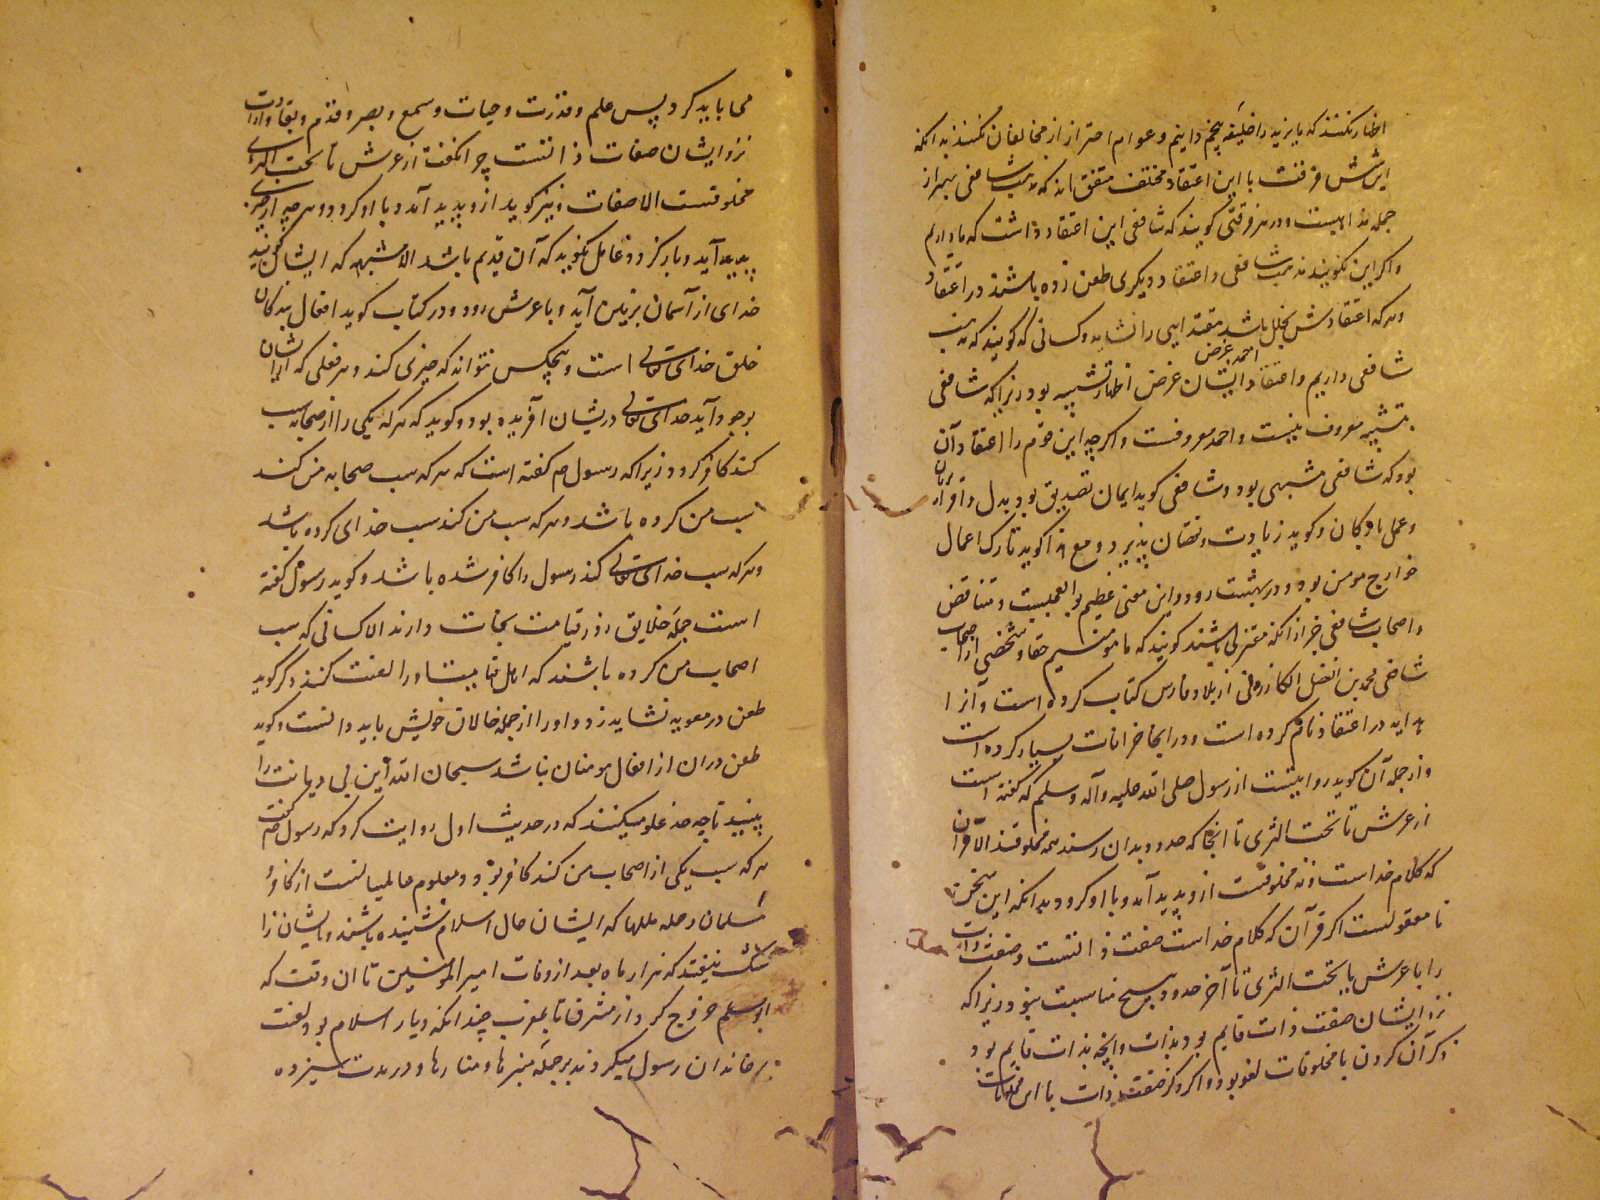 اظهار نکنند که یا یزید را خلیفه پنجم دانیم و عوام احتراز از مخالفان نکنند بدانکه
این شش فرقت با این اعتقاد مختلف متفق‌اند که مذهب شافعی بهتر از
جمله مذاهبست و در هر فرقتی گویند که شافعی این اعتقاد داشت که ما داریم
و اگر این نگویند مذهب شافعی و اعتقاد دیگری طعن زده باشند در اعتقاد او
و هر که اعتقادش بخلل باشد مقتدایی را نشاید و کسانی که گویند که مذهب
شافعی داریم و اعتقاد احمد غرض ایشان غرض اظهار تشبیه بود زیرا که شافعی
بتشبیه معروف نیست و احمد معروفست و اگرچه این قوم را اعتقاد آن
بود که شافعی مشبهی بود و شافعی گوید ایمان تصدیق بود بدل و اقرار بزبان
و عمل بارکان و گوید زیادت و نقصان پذیرد و مع هذا گوید تارک اعمال
خوارج مومن بود و در بهشت رود و این معنی عظیم بوالعجبست و متناقض
و اصحاب شافعی جز از آنکه معتزلی باشند گویند که ما مومنیم حقا و شخصی از اصحاب
شافعی محمد بن الفضل الکازرونی از بلاد فارس کتاب کرده است و آنرا
هدایه در اعتقاد نام کرده است و در آنجا خرافات بسیار کرده است
و از جمله آن گوید روایتست از رسول صلی الله علیه و آله وسلم که گفته است
از عرش تا تحت الثری تا آنجا که حدود بدان رسند همه مخلوقند الا قرآن
که کلام خداست و نه مخلوقست ازو پدید آمد و با او گردد بدانکه این سخن
نامعقولست اگر قرآن که کلام خداست صفت ذاتست و صفت ذات
را با عرش یا تحت الثری تا آخر حدود هیچ مناسبت نبود زیرا که
نزد ایشان صفت ذات قایم بود بذات و آنچه بذات قایم بود
ذکر آن کردن با مخلوقات لغو بود و اگر ذکر صفت ذات با این مخلوقات
محابا باید کرد پس علم و قدرت و حیات و سمع و بصر و قدم و بقا و ارادت
نزد ایشان صفات ذاتست چرا نگفت از عرش تا تحت الثری
مخلوقست الا صفات و نیز گوید ازو پدید آمد و با او گردد و هر چه از چیزی
پدید آید و باز گردد عاقل نگوید که آن قدیم باشد الا مشبهه که ایشان گویند
خدای از آسمان بزمین آید و با عرش رود و در کتاب گوید افعال بندگان
خلق خدای تعالی است و هیچکس نتواند که چیزی کند و هر فعلی که از ایشان
بوجود آید خدای تعالی در ایشان آفریده بود و گوید که هر که یکی را از صحابه سب
کند کافر گردد زیرا که رسول ص گفته است که هر که سب صحابه من کند
سب من کرده باشد و هر که سب من کند سب خدای کرده باشد
و هر که سب خدای تعالی کند رسول را کافر شده باشد و گوید رسول گفته
است جمله خلایق روز قیامت نجات دارند الا کسانی که سب
اصحاب من کرده باشند که اهل قیامت او را لعنت کنند دگر گوید
طعن در معویه نشاید زد و او را از جمله خالان خویش باید دانست و گوید
طعن در ان از افعال مومنان نباشد سبحان الله این بی دیانت را
ببینید تا چه حد غلو میکنند که در حدیث اول روایت کرد که رسول ص گفت
هر که سب یکی از اصحاب من کند کافر بود و معلوم عالمیانست از کافر و
مسلمان و جمله مللها که ایشان حال اسلام شنیده باشند و ایشان را
شک نیفتد که هزار ماه بعد از وفات امیر المومنین تا ان وقت که
ابو مسلم خروج کرد از مشرق تا بمغرب چندانکه دیار اسلام بود لعنت
بر خاندان رسول میکردند بر جمله منبرها و منارها و در مدت سیزده